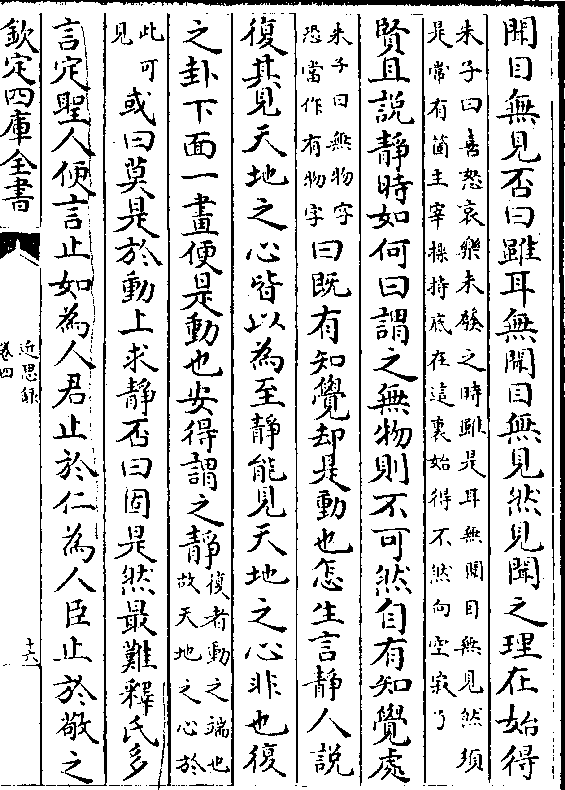 聞目無見否曰雖耳無聞目無見然見聞之理在始得
朱子曰喜怒哀樂未發之時雖是耳無聞目無見然須
是常有箇主宰操持底在這裏始得不然向空寂了
賢且說靜時如何曰謂之無物則不可然自有知覺處
朱子曰無物字
恐當作有物字
曰既有知覺却是動也怎生言靜人說
復其見天地之心皆以為至靜能見天地之心非也復
之卦下面一畫便是動也安得謂之靜
復者動之端也
故天地之心於
此可
見
或曰莫是於動上求靜否曰固是然最難釋氏多
言定聖人便言止如為人君止於仁為人臣止於敬之
欽定四庫全書
近思錄
卷四
十六